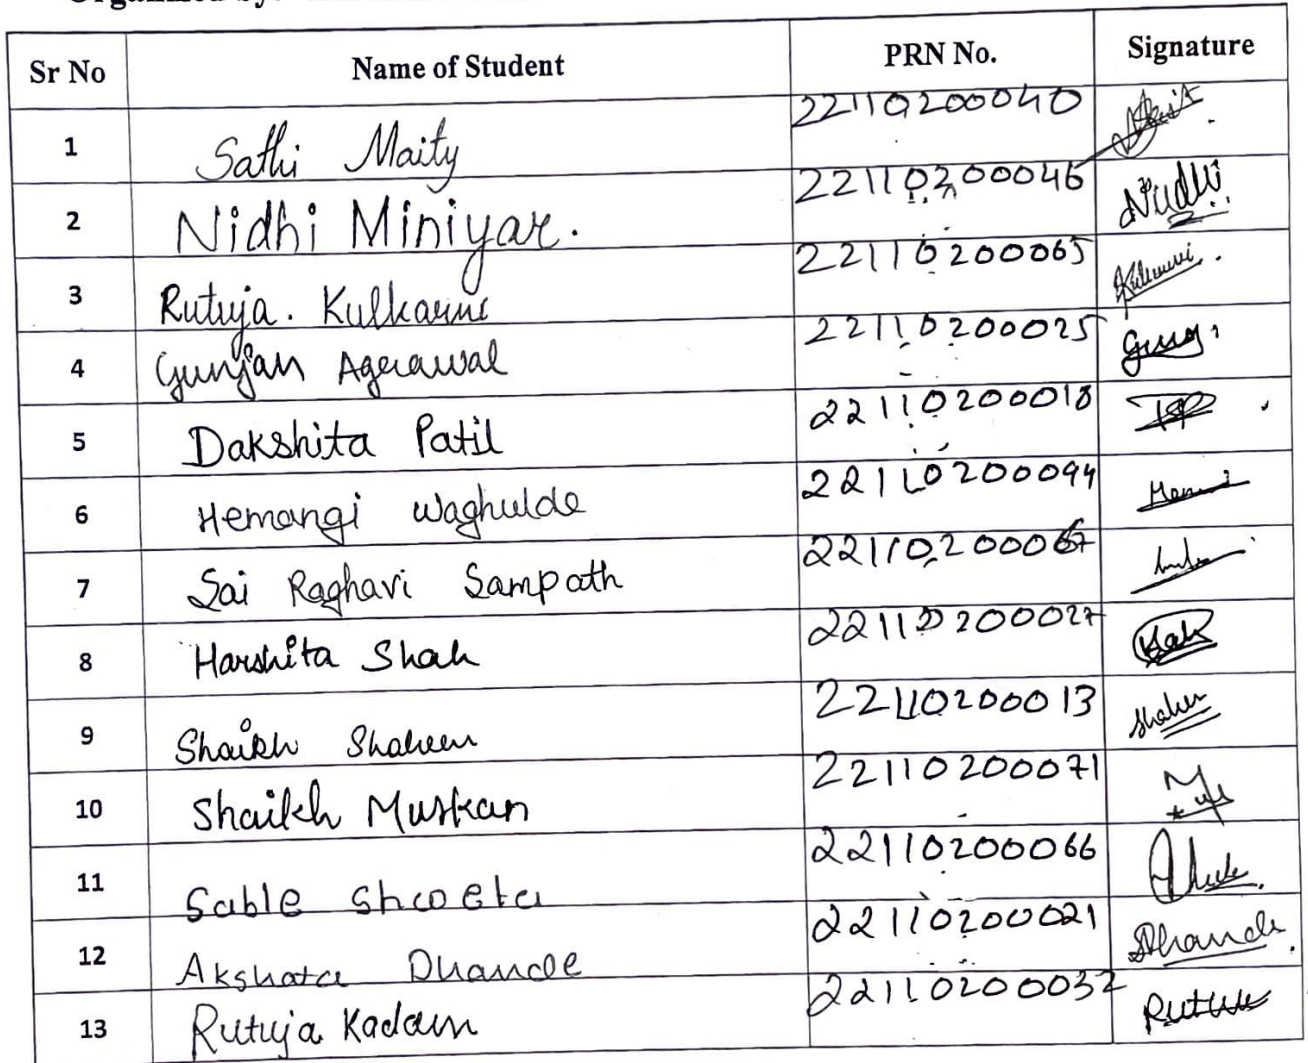 Sr No Name of Student PRN No. Signature
1 Sathi Maity 22110200040
2 Nidhi Miniyar. 22110200046 Nidhi
3 Rutuja. Kulkarni 22110200065 Kulkarni
4 Gunjan Agrawal 22110200025
5 Dakshita Patil 22110200018
6 Hemangi Waghulde 22110200094
7 Sai Raghavi Sampath 22110200067
8 Harshita Shah 22110200027
9 Shaikh Shaheen 22110200013
10 Shaikh Muskan 22110200071
11 Sable Shweta 22110200066
12 Akshata Dhande 22110200021 Dhande
13 Rutuja Kadam 22110200032